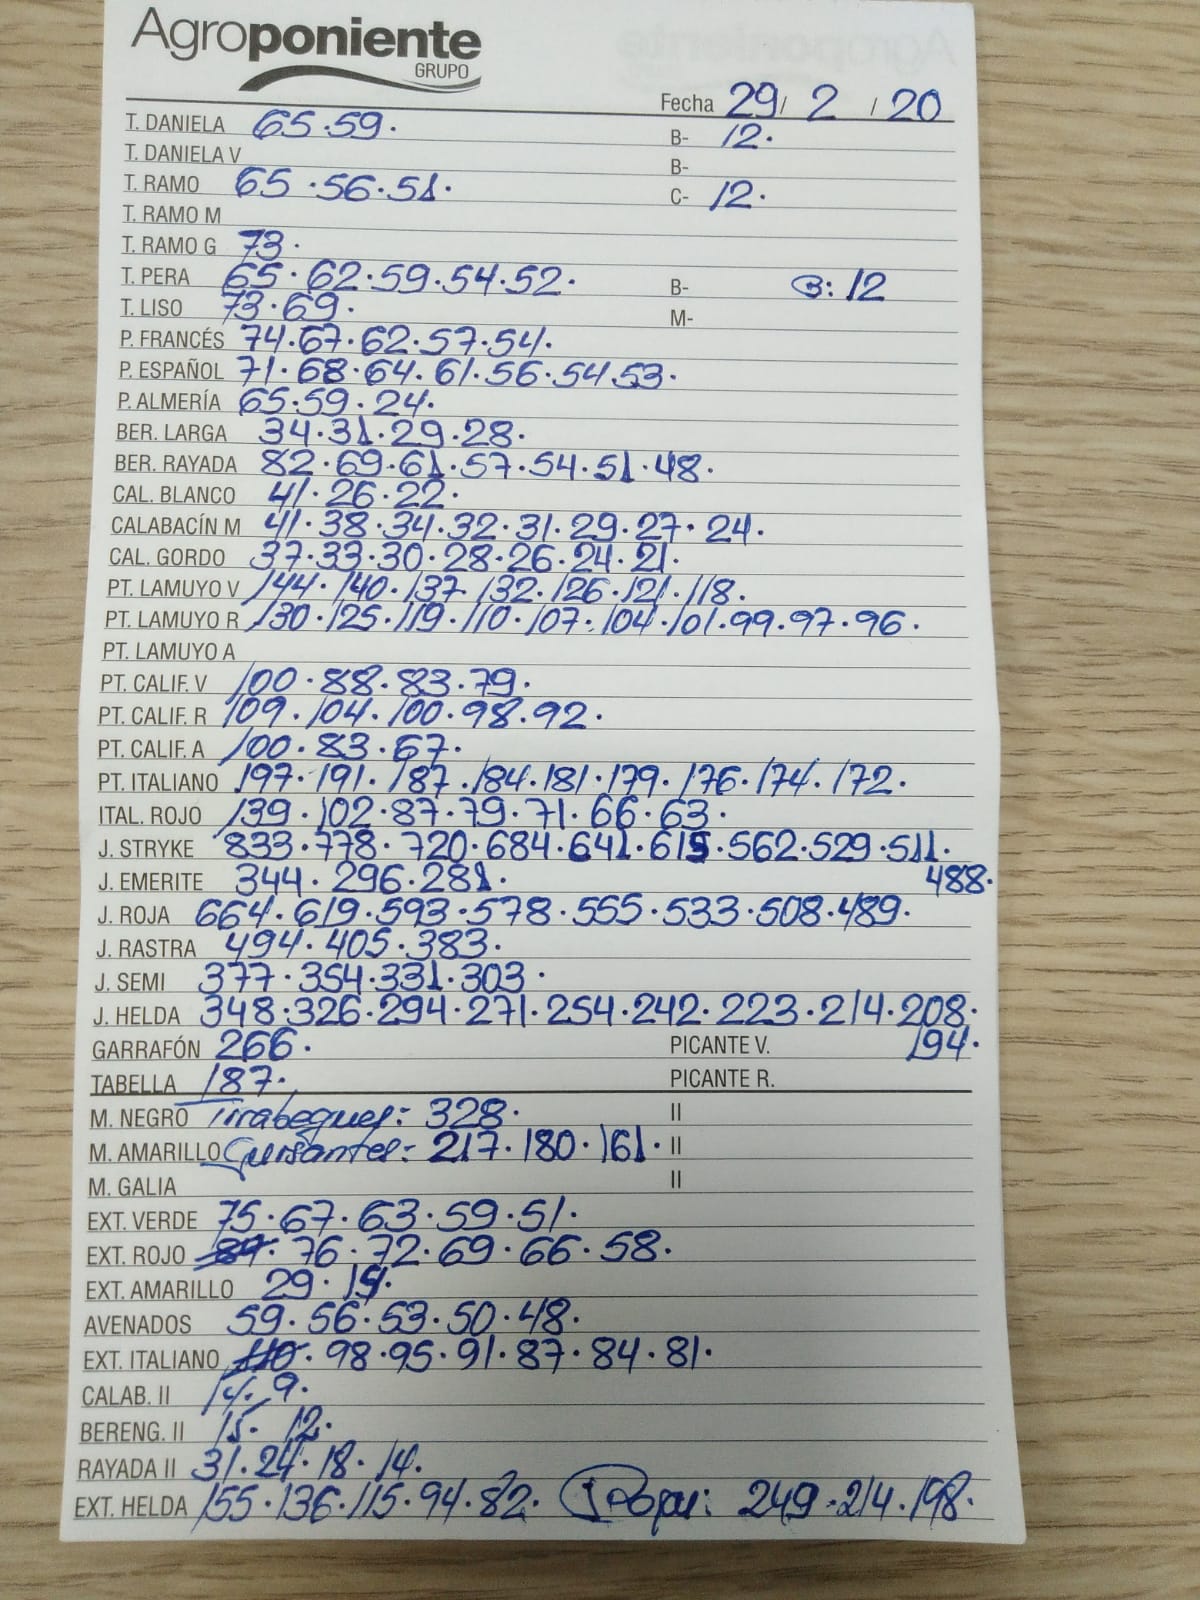 Agroponiente
GRUPO
Fecha 29/ 2 / 20
T. DANIELA 65.59. B- 12.
T. DANIELA V B-
T. RAMO 65 .56.51. C- 12.
T. RAMO M
T. RAMO G 73.
T. PERA 65. 62.59.54.52. B- B: 12
T. LISO 73.69. M-
P. FRANCÉS 74.67.62.57.54.
P. ESPAÑOL 71.68.64.61.56.54.53.
P. ALMERÍA 65.59.24.
BER. LARGA 34.31.29.28.
BER. RAYADA 82.69.61.57.54.51.48.
CAL. BLANCO 41.26.22.
CALABACÍN M 41.38.34.32.31.29.27.24.
CAL. GORDO 37.33.30.28.26.24.21.
PT. LAMUYO V 144.140.137.132.126.121.118.
PT. LAMUYO R 130.125.119.110.107.104.101.99.97.96.
PT. LAMUYO A
PT. CALIF. V 100.88.83.79.
PT. CALIF. R 109.104.100.98.92.
PT. CALIF. A 100.83.67.
PT. ITALIANO 197.191.187.184.181.179.176.174.172.
ITAL. ROJO 139.102.87.79.71.66.63.
J. STRYKE 833.778.720.684.641.615.562.529.511.
J. EMERITE 344.296.281. 488.
J. ROJA 664.619.593.578.555.533.508.489.
J. RASTRA 494.405.383.
J. SEMI 377.354.331.303.
J. HELDA 348.326.294.271.254.242.223.214.208.
GARRAFÓN 266. PICANTE V. 194.
TABELLA 187. PICANTE R.
M. NEGRO Tirabeques: 328. II
M. AMARILLO Guisantes: 217.180.161. II
M. GALIA II
EXT. VERDE 75.67.63.59.51.
EXT. ROJO 76.72.69.66.58.
EXT. AMARILLO 29.
AVENADOS 59.56.53.50.48.
EXT. ITALIANO 98.95.91.87.84.81.
CALAB. II 14. 9.
BERENG. II 15. 12.
RAYADA II 31.24.18.14.
EXT. HELDA 155.136.115.94.82. 249.214.198.